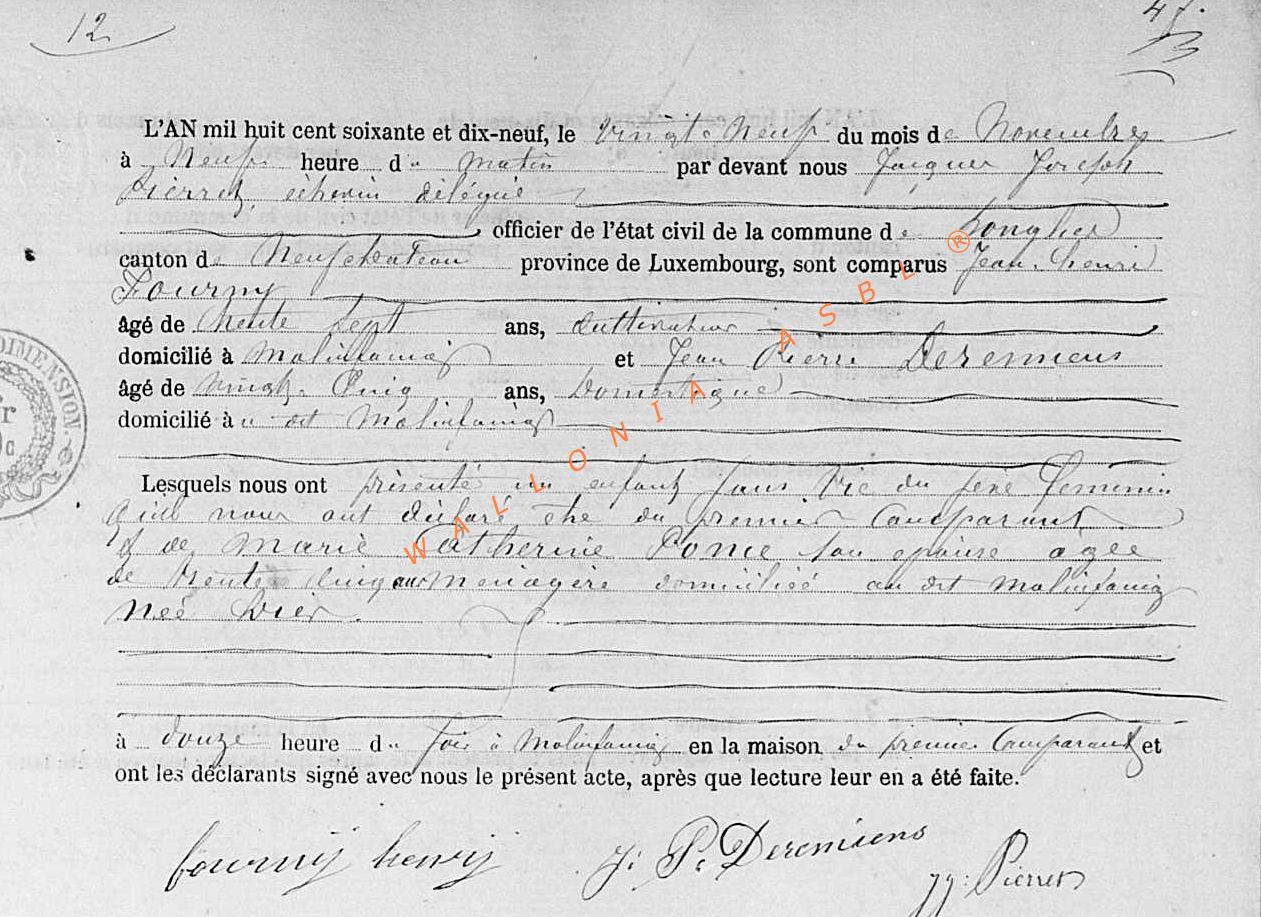 12
47.
L'AN mil huit cent soixante et dix-neuf, le vingt-neuf du mois de Novembre
à neuf heure du matin par devant nous Jacques Joseph
Pierret, échevin délégué
officier de l'état civil de la commune de Longlier
canton de Neufchateau province de Luxembourg, sont comparus Jean-henri
Fourny
âgé de trente sept ans, cultivateur
domicilié à Molinfaing et Jean Pierre Deremiens
âgé de vingt-cinq ans, Domestique
domicilié à u dit Molinfaing
Lesquels nous ont présenté un enfant sans vie du sexe feminin
qu'ils nous ont déclaré être du premier Comparant
et de Marie Catherine Ponce son epouse agée
de trente cinq ans menagère domiciliée au dit Molinfaing
neé hier.
à douze heure du soir à Molinfaing en la maison du premier Comparant et
ont les déclarants signé avec nous le présent acte, après que lecture leur en a été faite.
fourny henry J. P. Deremiens
JJ: Pierret
WALLONIA ASBL ®
DIMENSION